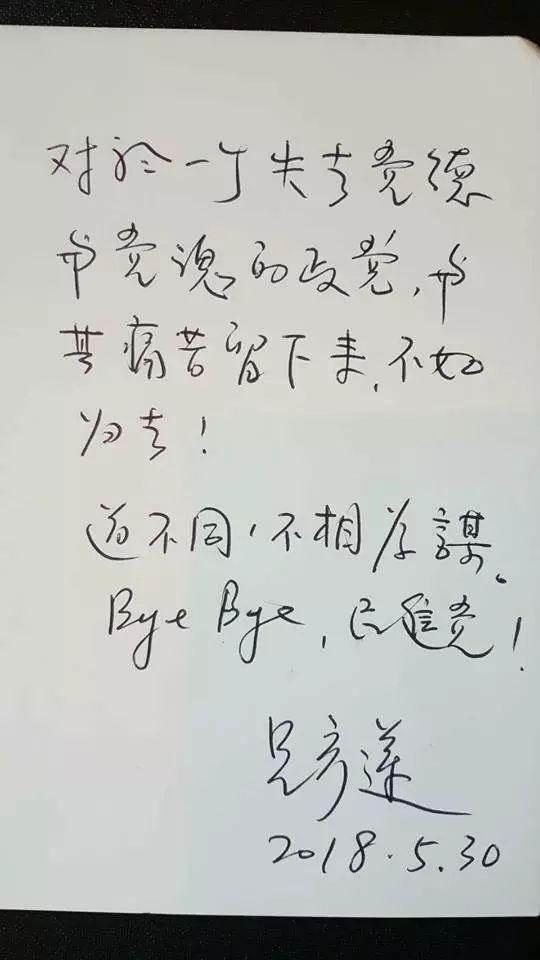 对於一个失去党德
与党魂的政党,与
其痛苦留下来,不如
归去!
道不同,不相为謀。
Bye Bye,民進党!
吕彦蓮
2018.5.30